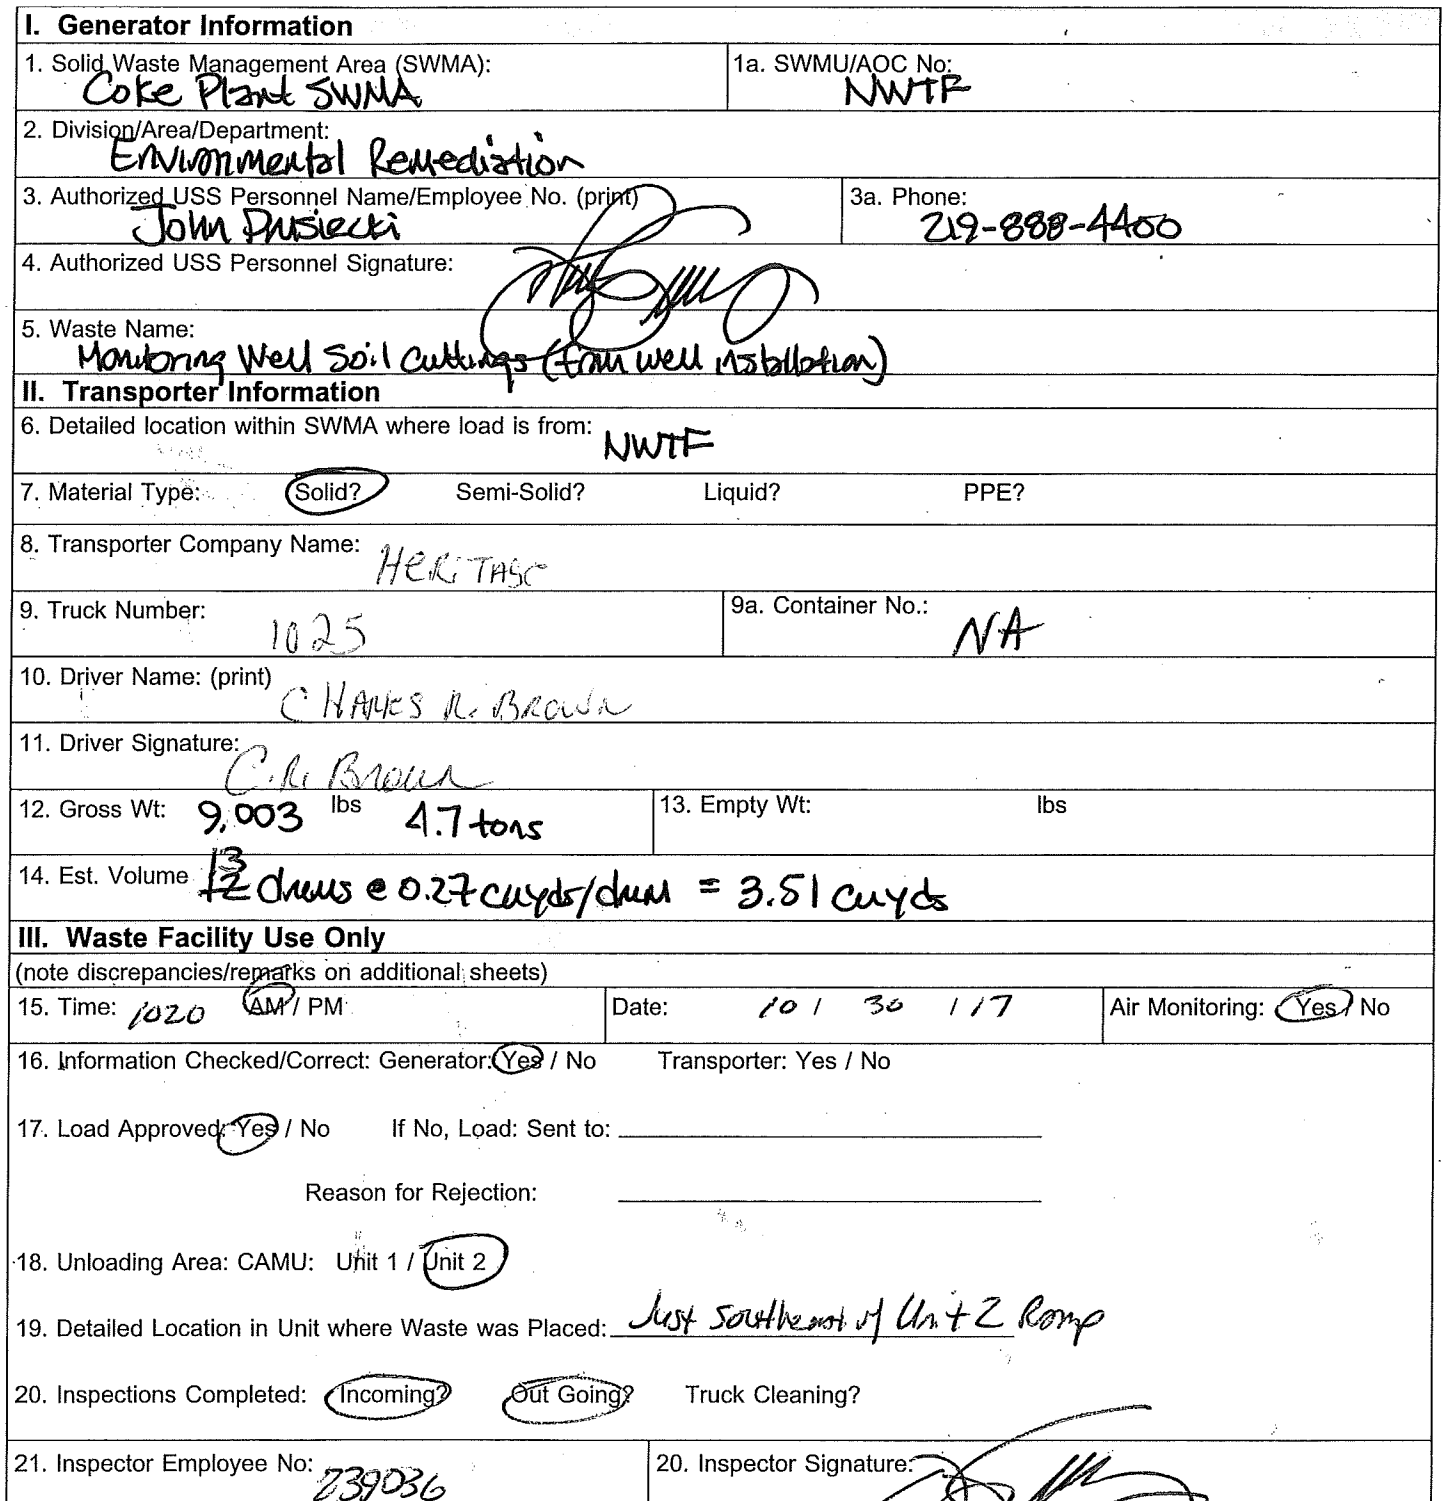 I. Generator Information
1. Solid Waste Management Area (SWMA): 1a. SWMU/AOC No:
Coke Plant SWMA NWTF
2. Division/Area/Department:
Environmental Remediation
3. Authorized USS Personnel Name/Employee No. (print) 3a. Phone:
John 219-888-4400
4. Authorized USS Personnel Signature:
5. Waste Name:
Monitoring Well Soil Cuttings (from well installation)
II. Transporter Information
6. Detailed location within SWMA where load is from: NWTF
7. Material Type: Solid? Semi-Solid? Liquid? PPE?
8. Transporter Company Name: HERITAGE
9. Truck Number: 1025 9a. Container No.: NA
10. Driver Name: (print) CHARLES R. BROWN
11. Driver Signature: C.R. Brown
12. Gross Wt: 9,003 lbs 4.7 tons 13. Empty Wt: lbs
14. Est. Volume 13 drums @ 0.27 cuyds/drum = 3.51 cuyds
III. Waste Facility Use Only
(note discrepancies/remarks on additional sheets)
15. Time: 1020 AM / PM Date: 10 / 30 / 17 Air Monitoring: Yes / No
16. Information Checked/Correct: Generator: Yes / No Transporter: Yes / No
17. Load Approved: Yes / No If No, Load: Sent to:
Reason for Rejection:
18. Unloading Area: CAMU: Unit 1 / Unit 2
19. Detailed Location in Unit where Waste was Placed: Just Southeast of Unit 2 Ramp
20. Inspections Completed: Incoming? Out Going? Truck Cleaning?
21. Inspector Employee No: 239036 20. Inspector Signature: